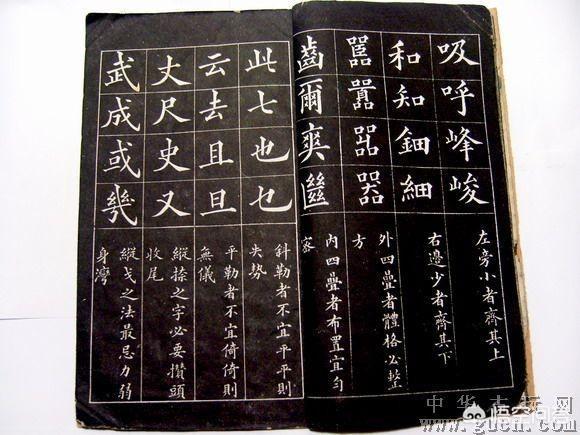 吸呼峰峻
左旁小者齊其上
和知鈿細
右邊少者齊其下
嚚囂器
外四疊者體格必整
方
齒爾爽
內四疊者布置宜勻
密
此七也乜
斜勒者不宜平平則
失勢
云去且旦
平勒者不宜倚倚則
無儀
丈尺史又
縱捺之字必要攢頭
收尾
武成或幾
縱戈之法最忌力弱
身灣
中华古玩网
www.gucn.com
悟空问答